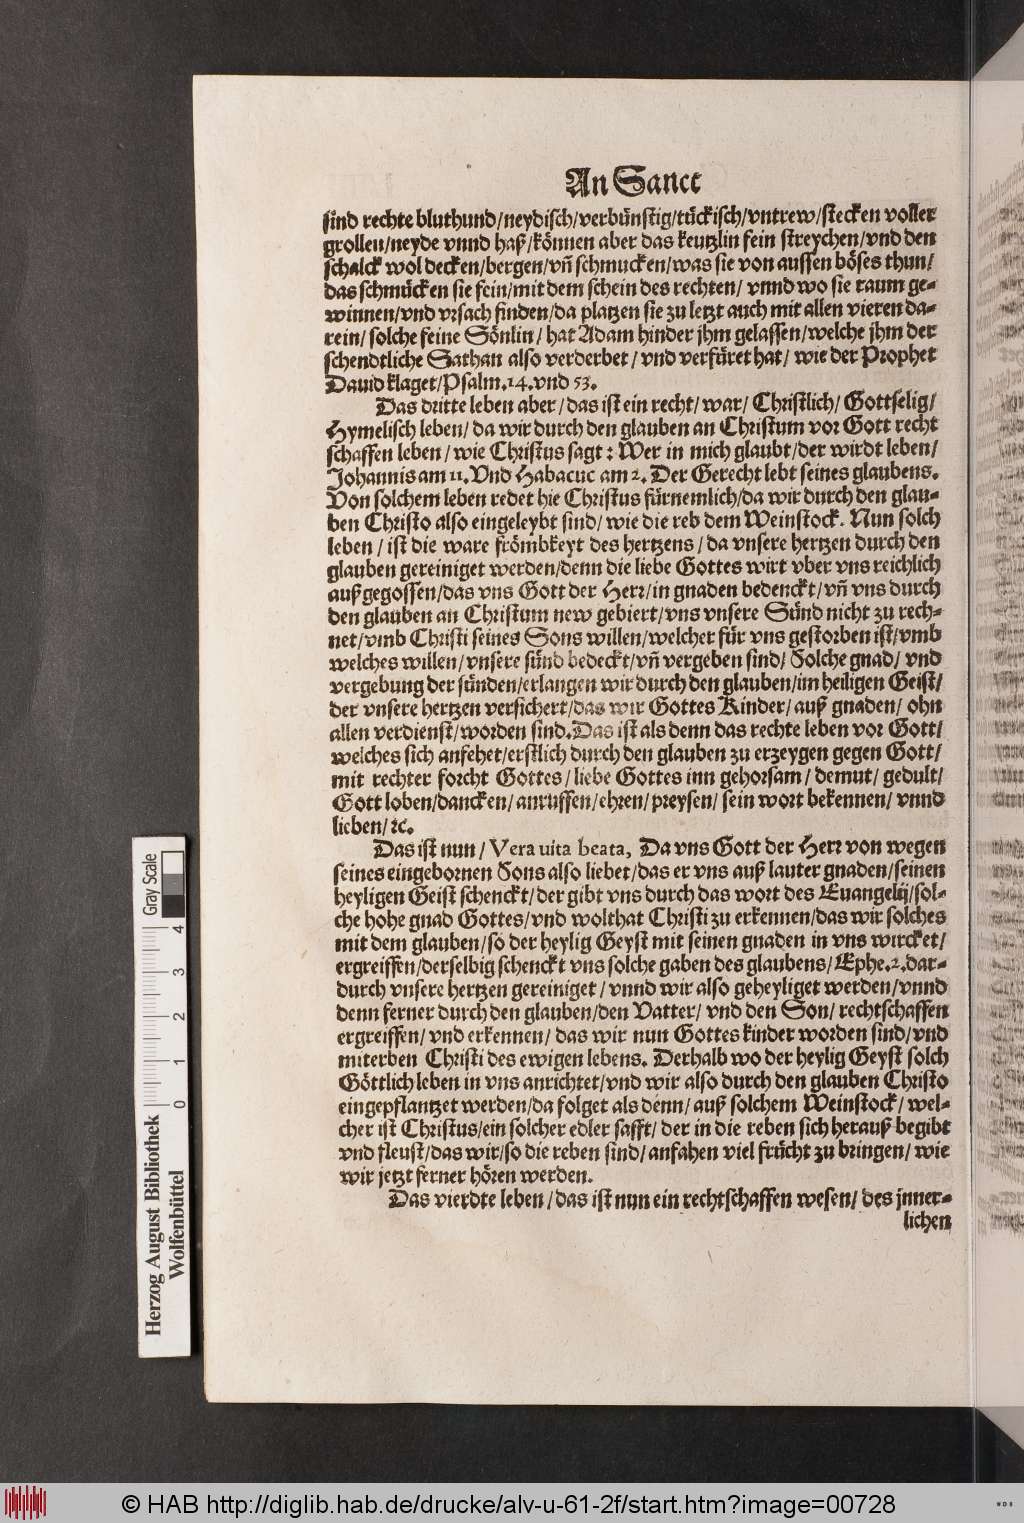 An Sanct
sind rechte bluthund/neydisch/verbünstig/tückisch/vntrew/stecken voller
grollen/neyde vnnd haß/können aber das keutzlin fein streychen/vnd den
schalck wol decken/bergen/vñ schmucken/was sie von aussen böses thun/
das schmücken sie fein/mit dem schein des rechten/ vnnd wo sie raum ge-
winnen/vnd vrsach finden/da platzen sie zu letzt auch mit allen vieren da-
rein/ solche feine Sönlin/ hat Adam hinder jhm gelassen/welche jhm der
schendtliche Sathan also verderbet/ vnd verfüret hat/ wie der Prophet
Dauid klaget/Psalm.14.vnd 53.
Das dritte leben aber/das ist ein recht/ war/ Christlich/ Gottselig/
Hymelisch leben/ da wir durch den glauben an Christum vor Gott recht
schaffen leben/ wie Christus sagt: Wer in mich glaubt/der wirdt leben/
Johannis am 11. Vnd Habacuc am 2. Der Gerecht lebt seines glaubens.
Von solchem leben redet hie Christus fürnemlich/da wir durch den glau-
ben Christo also eingeleybt sind/ wie die reb dem Weinstock. Nun solch
leben/ ist die ware frömbkeyt des hertzens/ da vnsere hertzen durch den
glauben gereiniget werden/denn die liebe Gottes wirt vber vns reichlich
außgegossen/das vns Gott der Herr/in gnaden bedenckt/vñ vns durch
den glauben an Christum new gebiert/vns vnsere Sünd nicht zu rech-
net/vmb Christi seines Sons willen/welcher für vns gestorben ist/vmb
welches willen/vnsere sünd bedeckt/vñ vergeben sind/ Solche gnad/ vnd
vergebung der sünden/erlangen wir durch den glauben/im heiligen Geist/
der vnsere hertzen versichert/das wir Gottes Kinder/ auß gnaden/ ohn
allen verdienst/worden sind. Das ist als denn das rechte leben vor Gott/
welches sich anfehet/erstlich durch den glauben zu erzeygen gegen Gott/
mit rechter forcht Gottes/ liebe Gottes inn gehorsam/ demut/ gedult/
Gott loben/dancken/anruffen/ehren/preysen/ sein wort bekennen/ vnnd
lieben/ ꝛc.
Das ist nun/ Vera uita beata, Da vns Gott der Herr von wegen
seines eingebornen Sons also liebet/das er vns auß lauter gnaden/seinen
heyligen Geist schenckt/der gibt vns durch das wort des Euangelij/sol-
che hohe gnad Gottes/vnd wolthat Christi zu erkennen/das wir solches
mit dem glauben/so der heylig Geyst mit seinen gnaden in vns wircket/
ergreiffen/derselbig schenckt vns solche gaben des glaubens/Ephe.2.dar-
durch vnsere hertzen gereiniget/vnnd wir also geheyliget werden/vnnd
denn ferner durch den glauben/den Vatter/ vnd den Son/ rechtschaffen
ergreiffen/ vnd erkennen/ das wir nun Gottes kinder worden sind/vnd
miterben Christi des ewigen lebens. Derhalb wo der heylig Geyst solch
Göttlich leben in vns anrichtet/vnd wir also durch den glauben Christo
eingepflantzet werden/da folget als denn/ auß solchem Weinstock/ wel-
cher ist Christus/ein solcher edler safft/ der in die reben sich herauß begibt
vnd fleust/das wir/so die reben sind/anfahen viel frücht zu bringen/ wie
wir jetzt ferner hören werden.
Das vierdte leben/das ist nun ein rechtschaffen wesen/ des jnner-
lichen
Herzog August Bibliothek
Wolfenbüttel
Gray Scale
0 1 2 3 4
© HAB http://diglib.hab.de/drucke/alv-u-61-2f/start.htm?image=00728